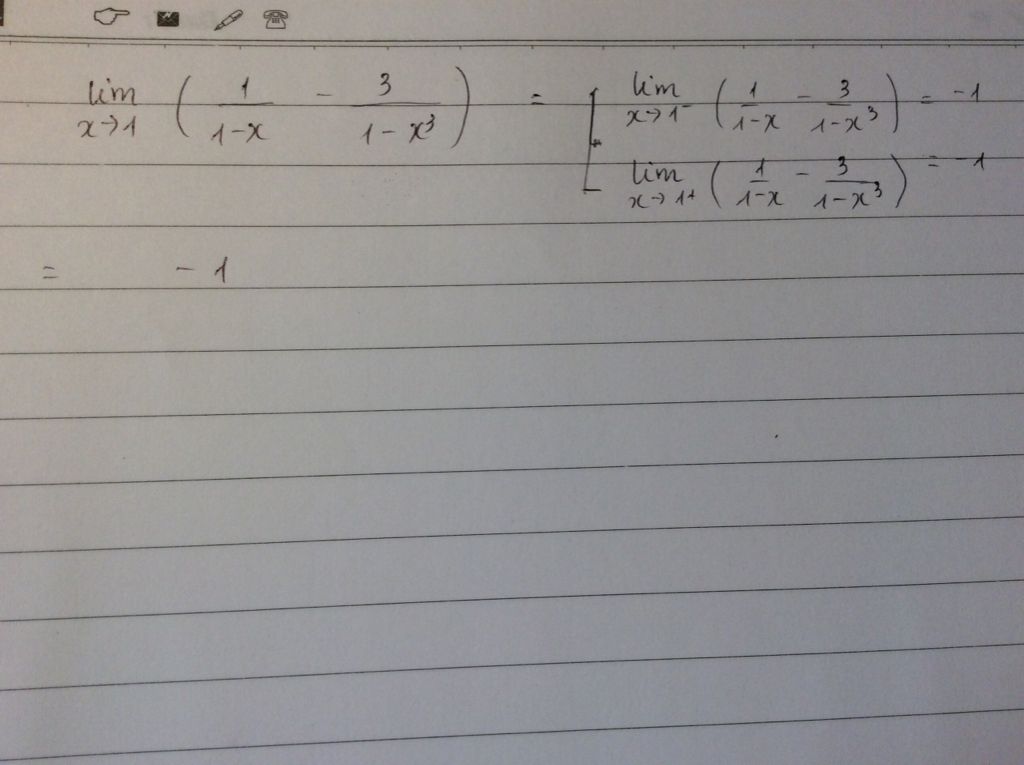 lim x→1 ( 1/(1-x) - 3/(1-x³) ) = [ lim x→1⁻ ( 1/(1-x) - 3/(1-x³) ) = -1
lim x→1⁺ ( 1/(1-x) - 3/(1-x³) ) = -1
= -1